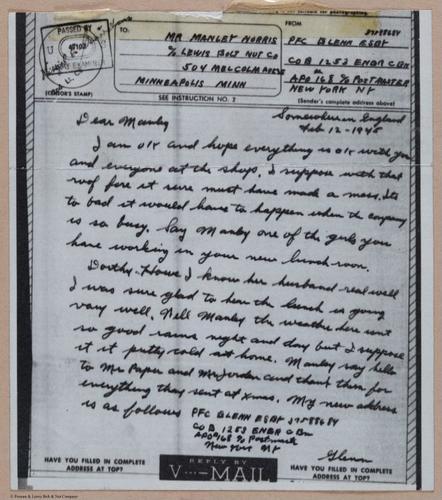 PASSED BY
U
47102
ARMY EXAMINER
(CENSOR'S STAMP)
TO:
MR MANLEY NORRIS
% LEWIS BOLT NUT CO
504 MALCOLM AVE SE
MINNEAPOLIS MINN
SEE INSTRUCTION NO. 2
FROM
PFC GLENN ESBY 37588684
CO B 1253 ENGR C BN
APO 168 % POSTMASTER
NEW YORK NY
(Sender's complete address above)
Somewhere in England
Feb 12 - 1945
Dear Manley
I am OK and hope everything is OK with you
and everyone at the shop. I suppose with that
roof fire it sure must have made a mess. Its
to bad it would have to happen when the company
is so busy. Say Manley one of the girls you
have working in your new lunch room.
Dorthy Howe I know her husband real well
I was sure glad to hear the lunch is going
very well. Well Manley the weather here isn't
so good rains night and day but I suppose
it it putty cold at home. Manley say hello
to Mr Paper and Mr Jordan and thank them for
everything they sent at Xmas. My new address
is as follows PFC GLENN ESBY 37588684
CO B 1253 ENGR C Bn
APO 168 % Postmaster
New York NY
Glenn
HAVE YOU FILLED IN COMPLETE
ADDRESS AT TOP?
REPLY BY
V···—MAIL
HAVE YOU FILLED IN COMPLETE
ADDRESS AT TOP?